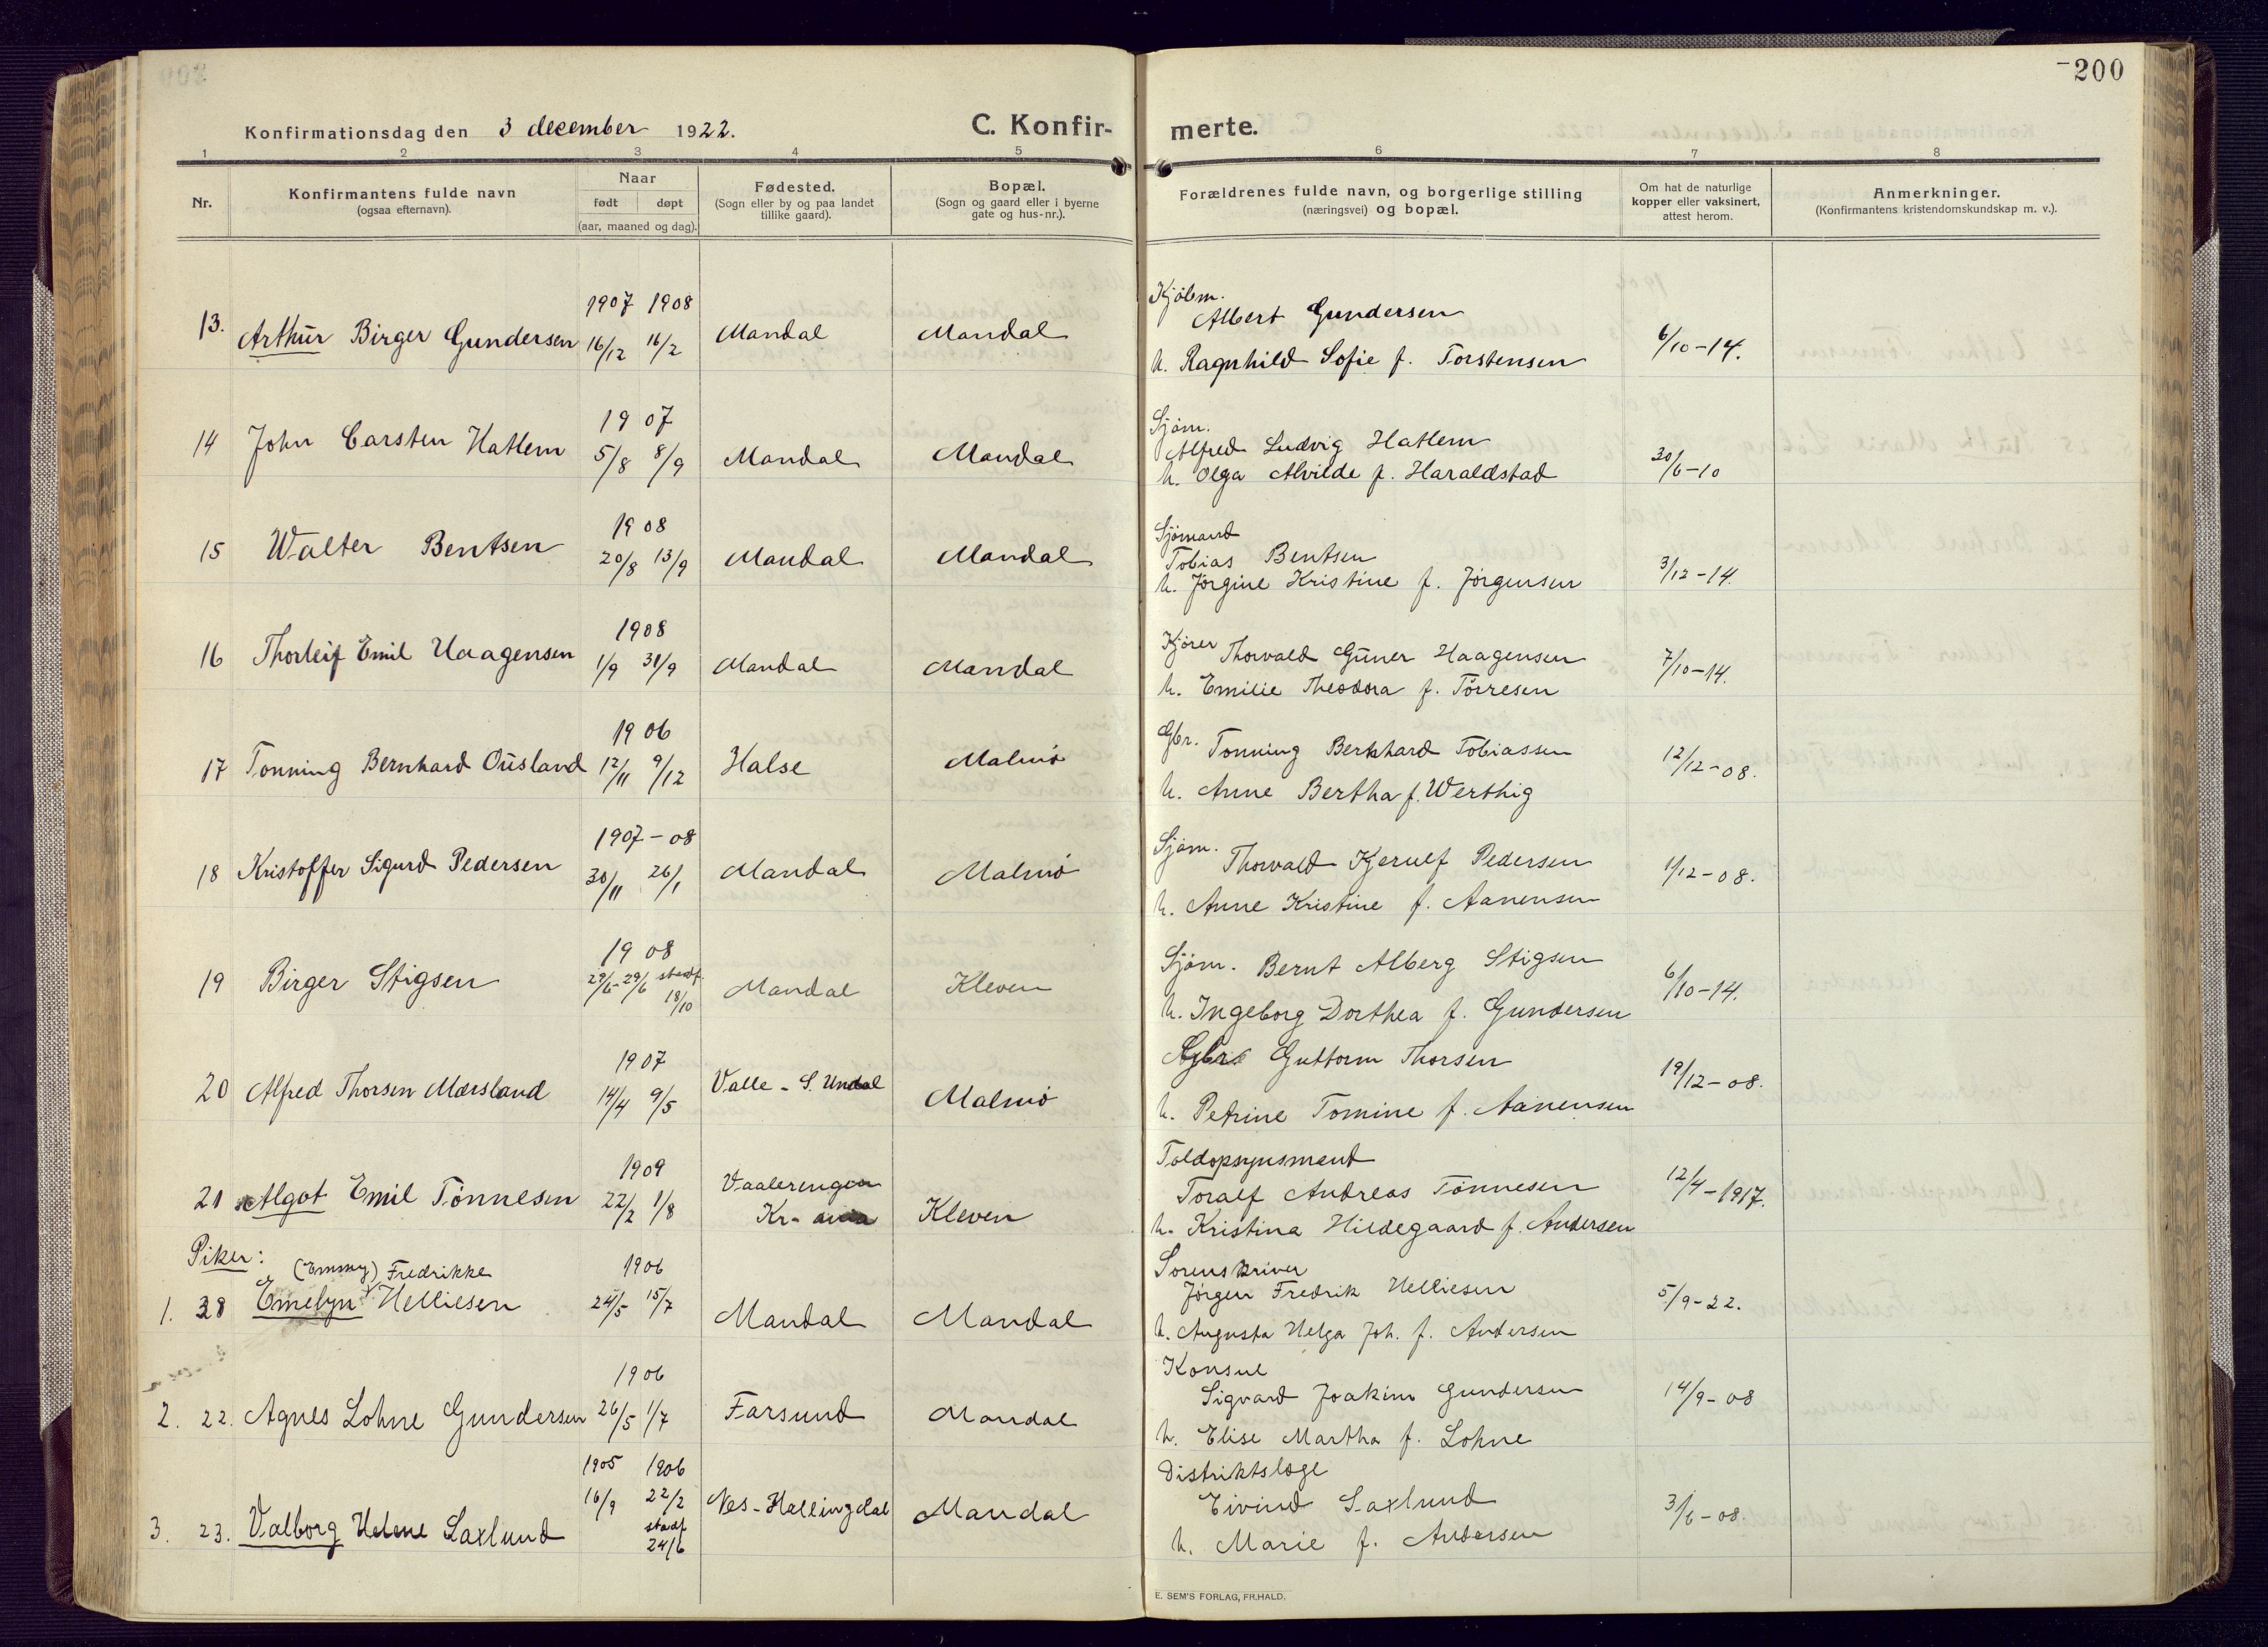 200
Konfirmationsdag den 3 december 1922.
C. Konfir-
merte.
1 2 3 4 5 6 7 8
Nr.
Konfirmantens fulde navn
(ogsaa efternavn).
Naar
født døpt
(aar, maaned og dag).
Fødested.
(Sogn eller by og paa landet
tillike gaard).
Bopæl.
(Sogn og gaard eller i byerne
gate og hus-nr.).
Forældrenes fulde navn, og borgerlige stilling
(næringsvei) og bopæl.
Om hat de naturlige
kopper eller vaksinert,
attest herom.
Anmerkninger.
(Konfirmantens kristendomskundskap m. v.).
1907 1908 Kjøbm.
13. Arthur Birger Gundersen 16/12 16/2 Mandal Mandal Albert Gundersen 6/10-14.
h. Ragnhild Sofie f. Torstensen
1907 Sjøm.
14 John Carsten Hatlem 5/8 8/9 Mandal Mandal Alfred Ludvig Hatlem 30/6-10
h. Olga Alvilde f. Haraldstad
1908 Sjømand
15 Walter Bentsen 20/8 13/9 Mandal Mandal Tobias Bentsen 3/12-14.
h. Jørgine Kristine f. Jørgensen
1908
16 Thorleif Emil Haagensen 1/9 31/9 Mandal Mandal Kjører Thorvald Guner Haagensen 7/10-14.
h. Emilie Theodora f. Tørresen
1906
17 Tonning Bernhard Ousland 12/11 9/12 Halse Malmø Gbr. Tonning Bernhard Tobiassen 12/12-08.
h. Anne Bertha f. Werthig
1907-08
18 Kristoffer Sigurd Pedersen 30/11 26/1 Mandal Malmø Sjøm. Thorvald Kjerulf Pedersen 1/12-08.
h. Anne Kristine f. Aanensen
1908
19 Birger Stigsen 29/6-29/6 stadf. 18/10 Mandal Kleven Sjøm. Bernt Alberg Stigsen 6/10-14.
h. Ingeborg Dorthea f. Gundersen
1907
20 Alfred Thorsen Mærsland 14/4 9/5 Valle - S. Undal Malmø Guttorm Thorsen 19/12-08.
h. Petrine Tomine f. Aanensen
1909 Toldopsynsmand
21 Algot Emil Tønnesen 22/2 1/8 Vaalerengen Kr-ania Kleven Toralf Andreas Tønnesen 12/4-1917.
h. Kristina Hildegaard f. Andersen
Piker:
(Emmy) Fredrikke 1906 Sorenskriver
1. 28 Emelyn Helliesen 24/5 15/7 Mandal Mandal Jørgen Fredrik Helliesen 5/9-22.
h. Augusta Helga Joh. f. Andersen
1906 Konsul
2. 22. Agnes Lohne Gundersen 26/5 1/7 Farsund Mandal Sigvard Joakim Gundersen 14/9-08
h. Elise Martha f. Lohne
1905 1906 Distriktslæge
3. 23. Valborg Helene Saxlund 16/9 22/2 stadf 24/6 Nes-Hallingdal Mandal Eivind Saxlund 3/6-08.
h. Marie f. Andersen
E. SEM'S FORLAG, FR.HALD.